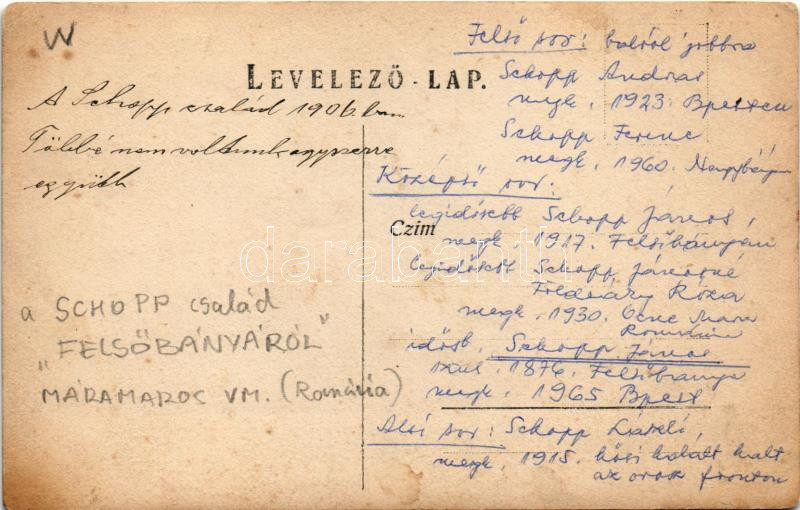 W
LEVELEZŐ - LAP.
A Schopp család 1906.ban.
Többé nem voltunk egyszerre
együtt
a SCHOPP család
"FELSŐBÁNYÁRÓL"
MÁRAMAROS VM. (Románia)
Felső sor: balról jobbra
Schopp Andras
megh. 1923. Bpesten
Schopp Ferenc
megh. 1960. Nagybányán
Középső sor:
legidősebb Schopp János,
Czim
megh. 1917. Felsőbányán
legidősebb Schopp Jánosné
Földváry Róza
megh. 1930. Ocne Mara
Romania
idősb. Schopp János
szül. 1876. Felsőbánya
megh. 1965 Bpest
Alsó sor: Schopp László,
megh. 1915. hősi halált halt
az orosz fronton
darabanth